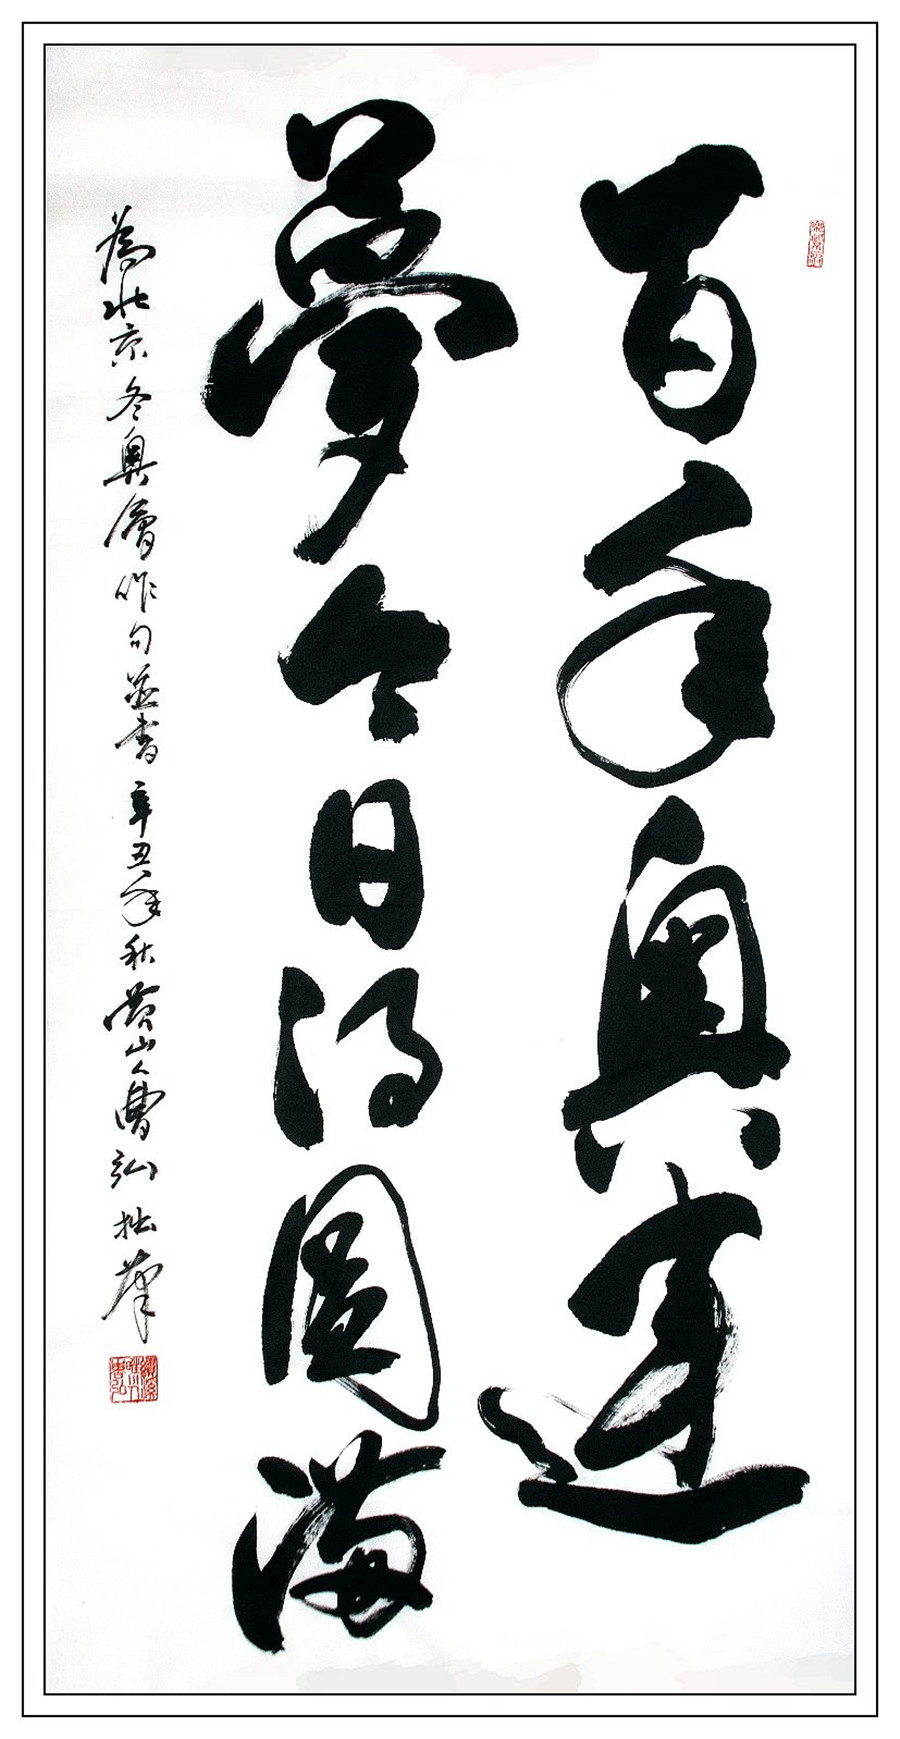 百年奥運
夢今日得圓滿
為北京冬奥會作句並書 辛丑年秋 黄山人曹弘 拙筆